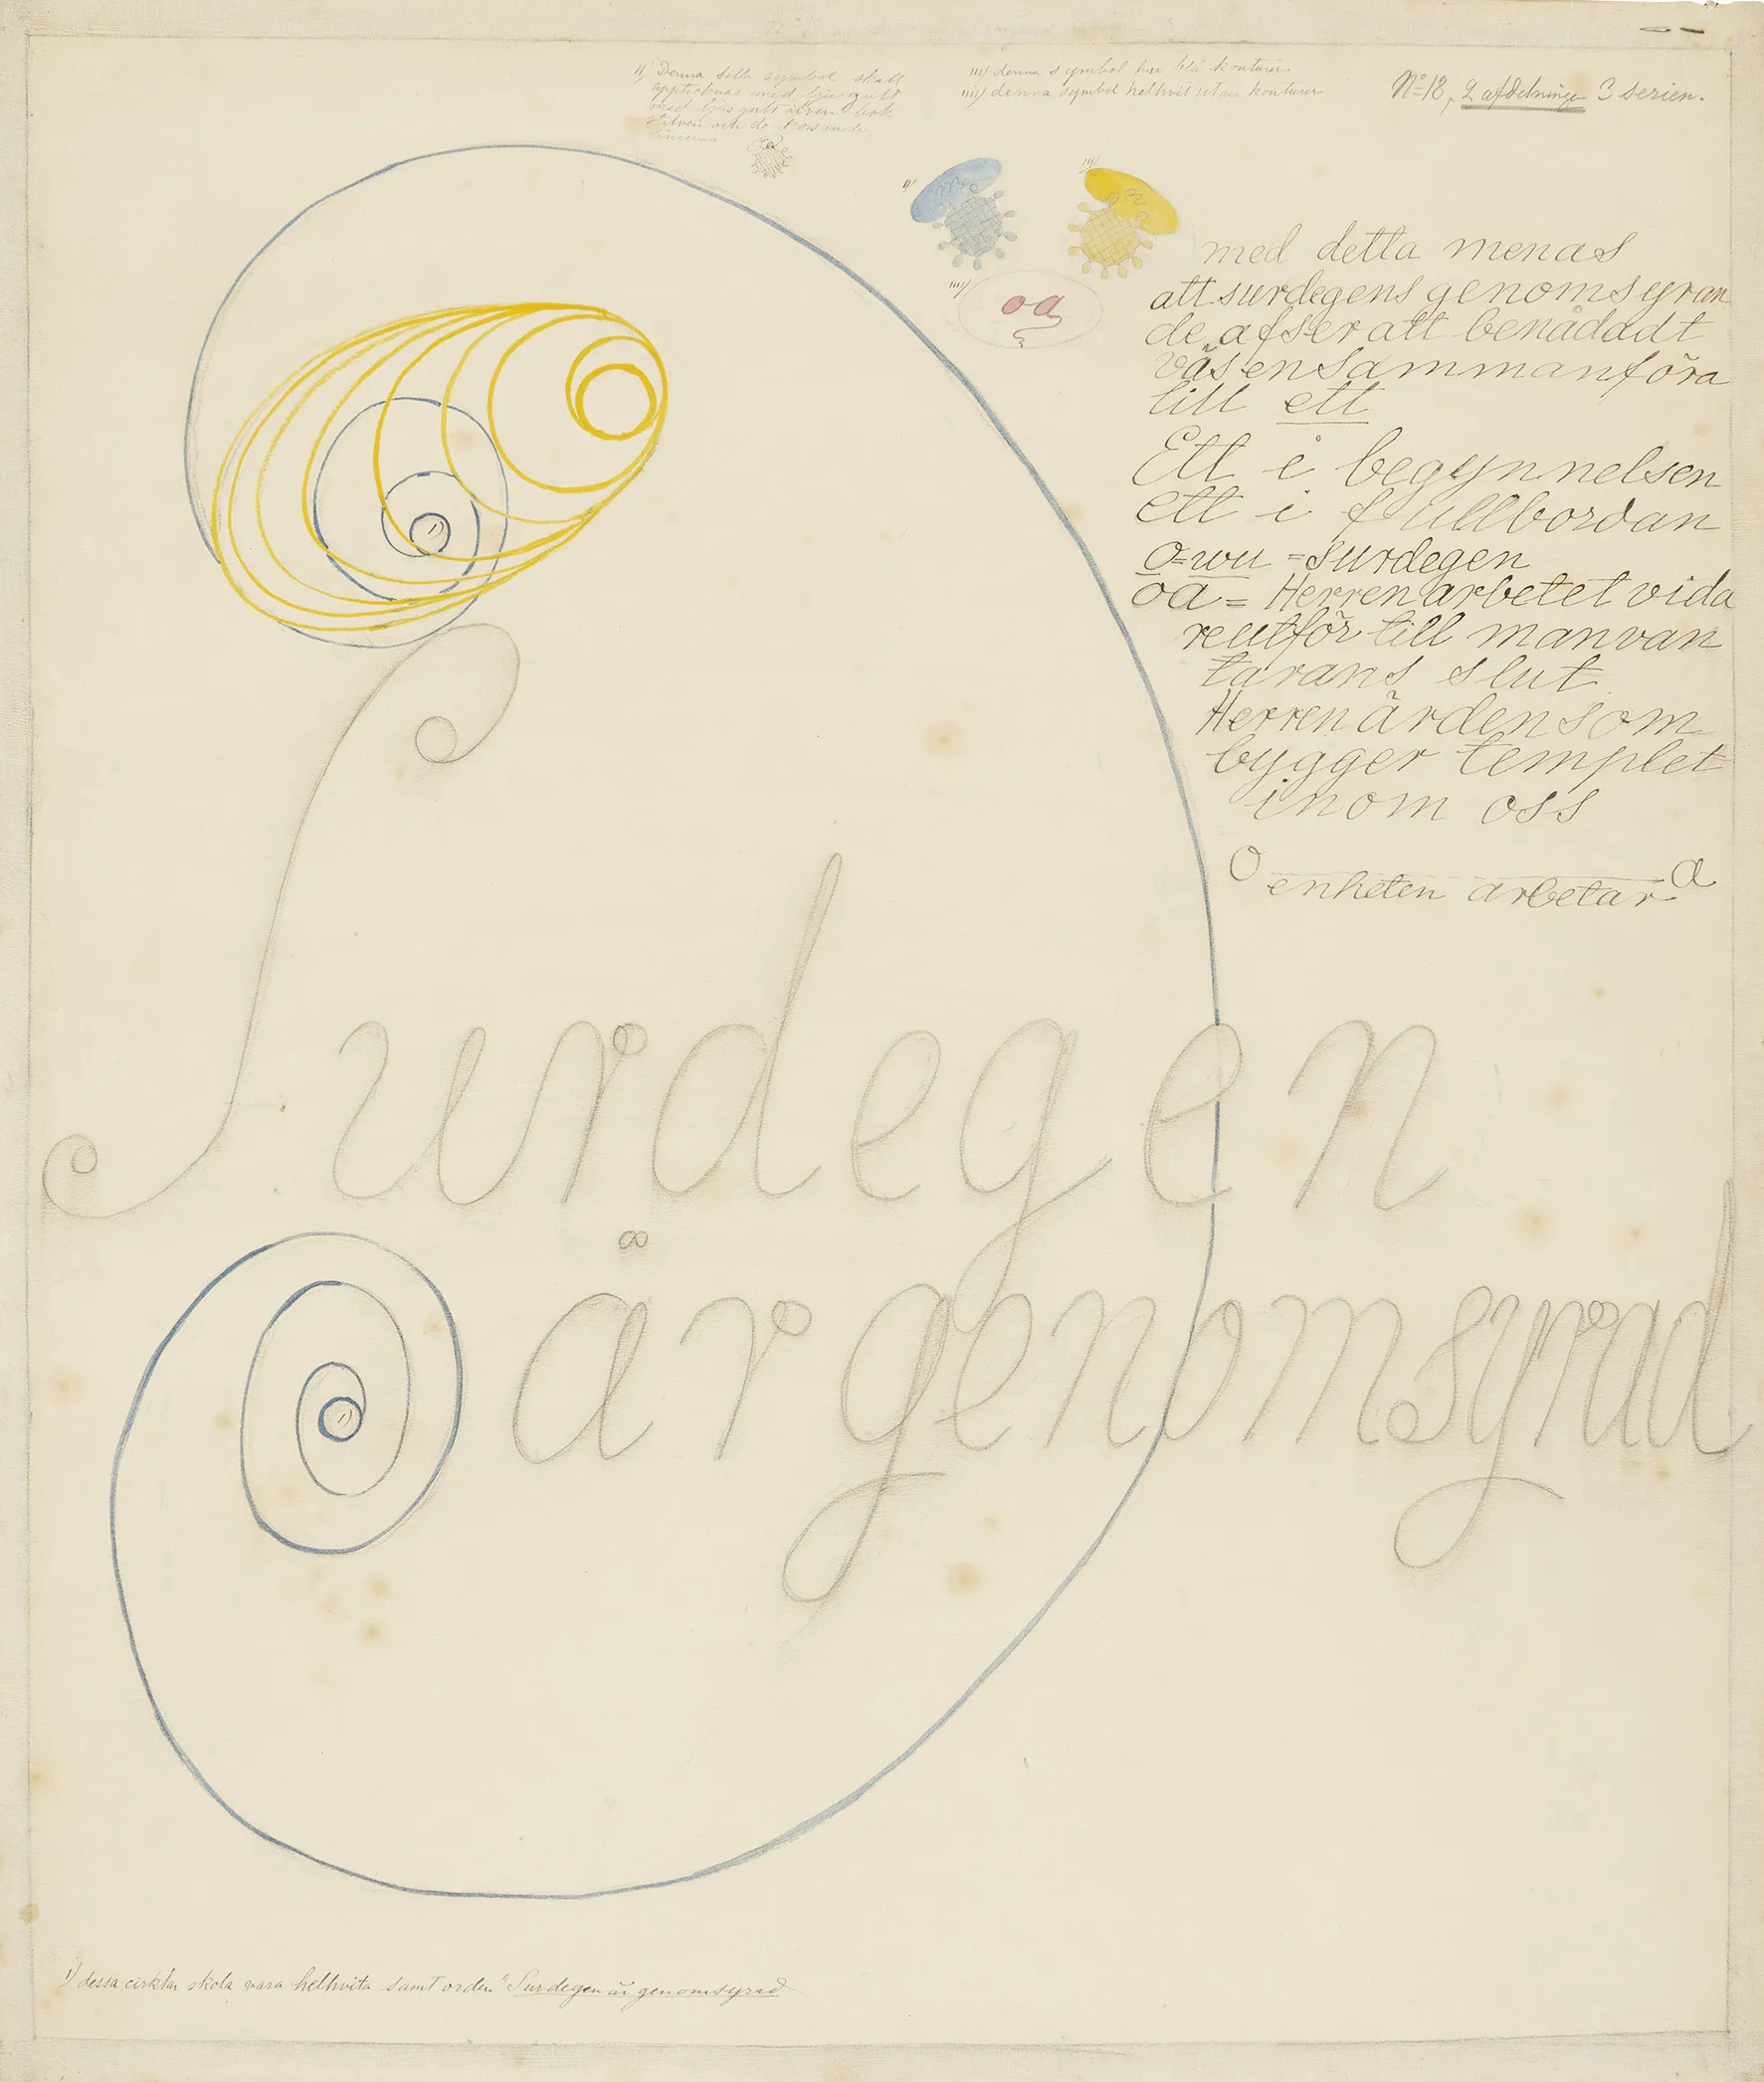 II) Denna lilla symbol skall
upptecknas med ljusgult
med ljusgult äfven bok
stäfven och de korsande
linierna
III) denna symbol har blå konturer
IIII) denna symbol helhvit utan konturer
No 18, 2 afdelninge 3 serien.
II)
III)
IIII)
oa
med detta menas
att surdegens genomsyran
de afser att benådadt
väsen sammanföra
till ett
Ett i begynnelsen
ett i fullbordan
o=wu = surdegen
oa = Herren arbetet vida
re utför till manvan
tarans slut
Herren är den som
bygger templet
inom oss
O enheten arbetar a
Surdegen
är genomsyrad
I)
I)
I) dessa cirklar skola vara helhvita samt orden "Surdegen är genomsyrad